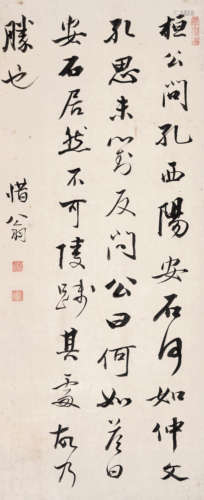 桓公問孔西陽安石何如仲文
孔思未對反問公曰何如答曰
安石居然不可陵踐其處故乃
勝也
惜翁